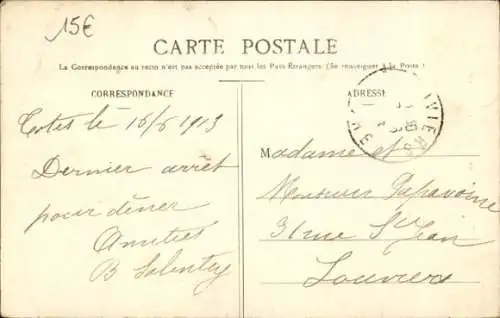 15€
CARTE POSTALE
La Correspondance au recto n'est pas acceptée par tous les Pays Étrangers (Se renseigner à la Poste.)
CORRESPONDANCE
ADRESSE
Totes le 16/6 1913
Dernier arrêt
pour dîner
Amitiés
B
Madame et
Monsieur Papavoine
31 rue St Jean
Louviers